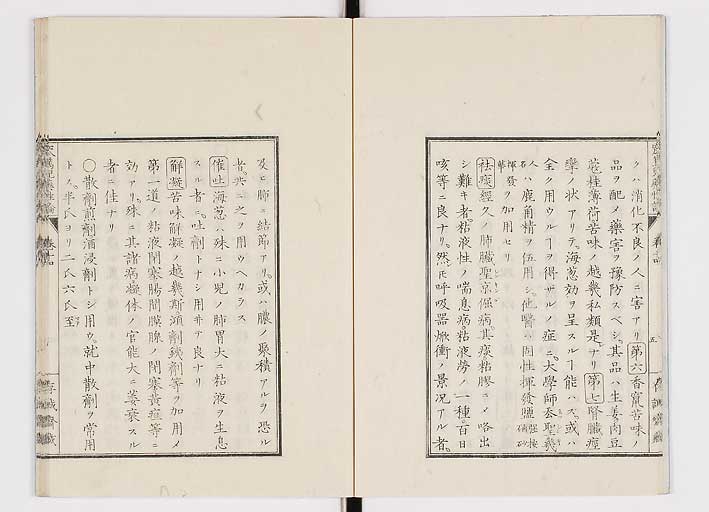 クハ消化不良ノ人ニ害アリ第六香竄苦味ノ
品ヲ配メ藥害ヲ豫防スベシ。其品ハ生姜肉豆
蔲桂薄荷苦味ノ越幾私類是ナリ第七腎臓痙
攣ノ状アリテ。海葱効ヲ呈スルヿ能ハズ。或ハ
全ク用ウルヿヲ得ザルノ症ニ。大學師
人ハ鹿角精ヲ伍用シ。他醫ハ固性揮發鹽
揮發ヲ加用セリ
祛痰經久ノ肺臓聖京倔病。其痰粘膠ニメ咯出
シ難キ者。粘液性ノ喘息病粘液勞ノ一種。百日
咳等ニ良ナリ。然𪜈呼吸器焮衝ノ景况アル者。
及ヒ肺ニ結節アリ。或ハ膿ノ聚積アルヲ恐ル
者。共ニ之ヲ用ウヘカラス
催吐海葱ハ殊ニ小兒ノ肺胃大ニ粘液ヲ生息
スル者ニ。吐劑トナシ用井テ良ナリ
解凝苦味解凝ノ越幾斯瀕劑鐵劑等ヲ加用メ
第一道ノ粘液閉塞腸間膜腺ノ閉塞黄疸等ニ
効アリ。殊ニ其諸病凝体ノ官能大ニ萎衰スル
者ニ佳ナリ
〇散劑煎劑酒浸劑トシ用ウ。就中散劑ヲ常用
トス。半氏ヨリ二氏六氏至